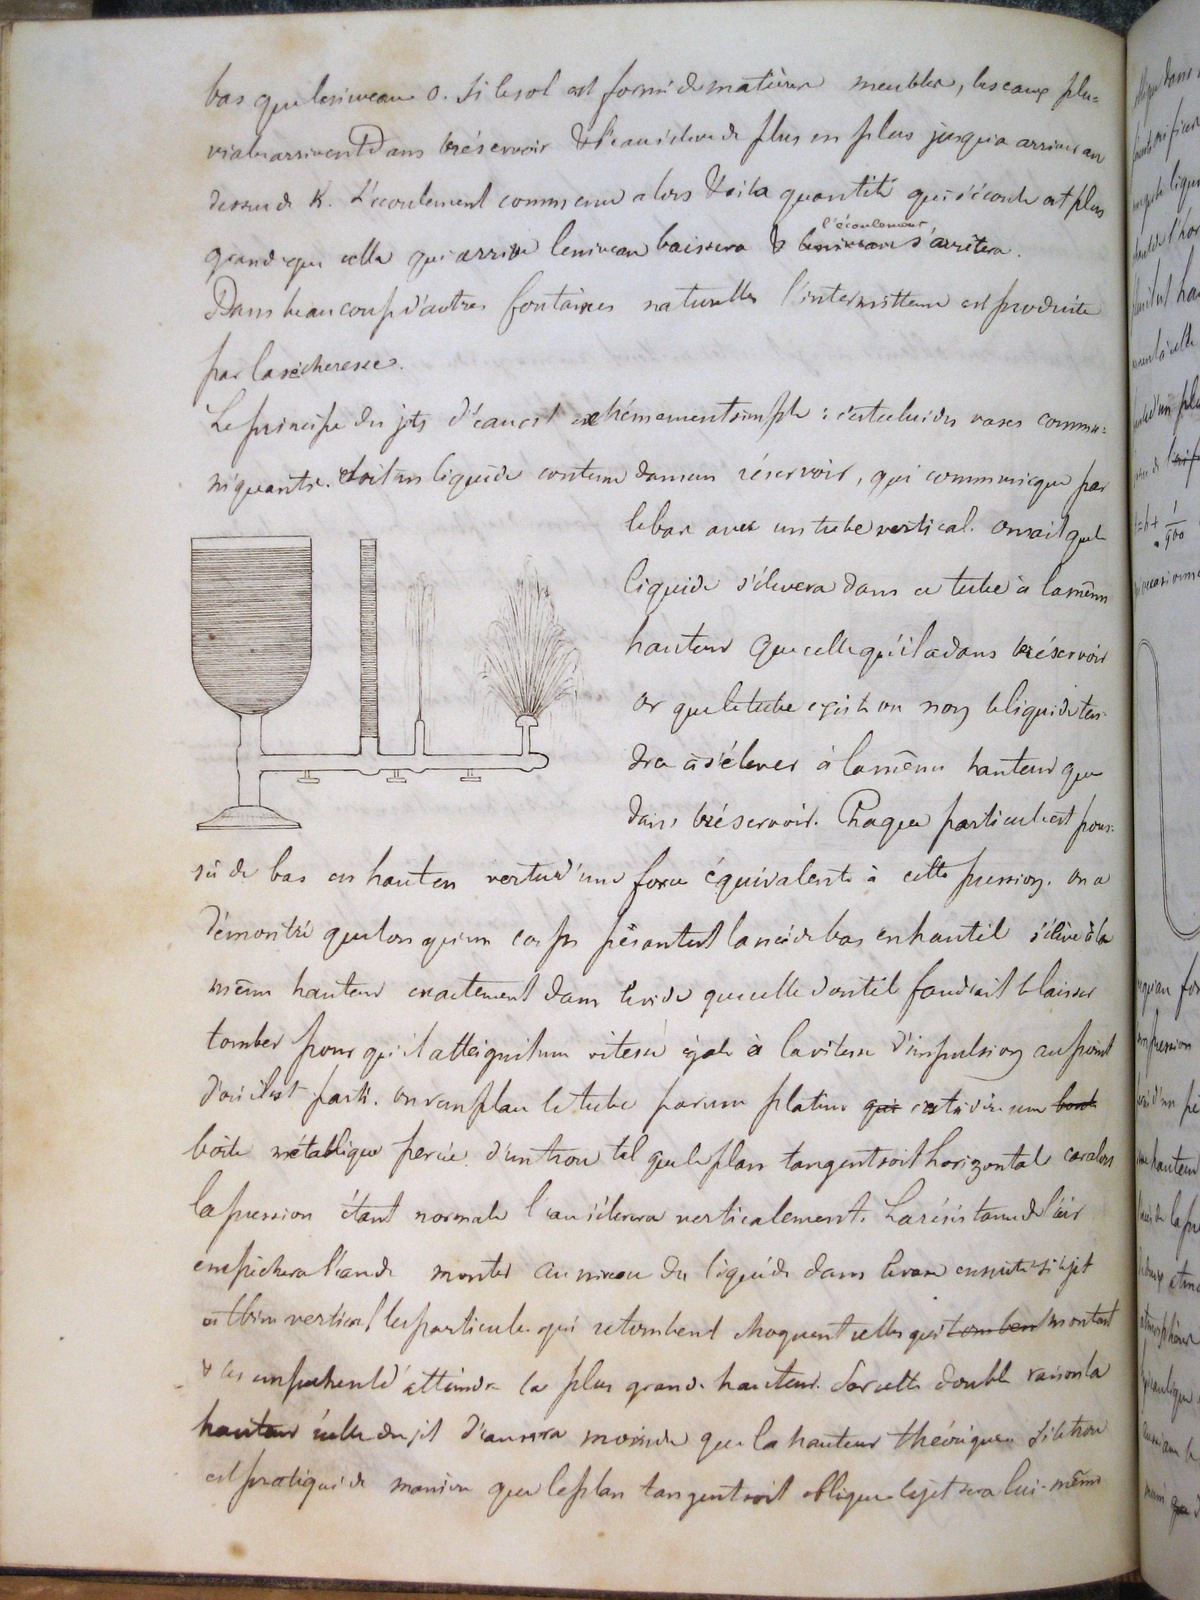 bas que le niveau O. Si le sol est formé de matières meubles, les eaux plu=
viales arrivent dans le réservoir & l'eau s'élève de plus en plus jusqu'a arriver au
dessus de K. L'écoulement commence alors & si la quantité qui s'écoule est plus
grande que celle qui arrive le niveau baissera & le niveau l'écoulement s'arrêtera.
Dans beaucoup d'autres fontaines naturelles l'intermittence est produite
par la sécheresse.
Le principe des jets d'eau est extrêmement simple : c'est celui des vases commu=
niquants. Soit un liquide contenu dans un réservoir, qui communique par
le bas avec un tube vertical. On sait que le
liquide s'élevera dans ce tube à la même
hauteur que celle qu'il a dans le réservoir
or que le tube existe ou non le liquide ten-
dra à s'élever à la même hauteur que
dans le réservoir. Chaque particule est pous-
sée de bas en haut en vertu d'une force équivalente à cette pression. On a
démontré que lorsqu'un corps pesant est lancé de bas en haut il s'élève à la
même hauteur exactement dans le vide que celle dont il faudrait le laisser
tomber pour qu'il atteignit une vitesse égale à la vitesse d'impulsion au point
d'où il est parti. On remplace le tube par une platine qui c'est à dire une boite
boite métallique percée d'un trou tel que le plan tangent soit horizontal car alors
la pression étant normale l'eau s'élevera verticalement. La résistance de l'air
empêchera l'eau de monter au niveau du liquide dans le vase ensuite si le jet
est bien vertical les particules qui retombent choquent celles qui tombent montent
& les empêchent d'atteindre la plus grande hauteur. Par cette double raison la
hauteur réelle du jet d'eau sera moindre que la hauteur théorique. Si le trou
est pratiqué de manière que le plan tangent soit oblique le jet sera lui-même